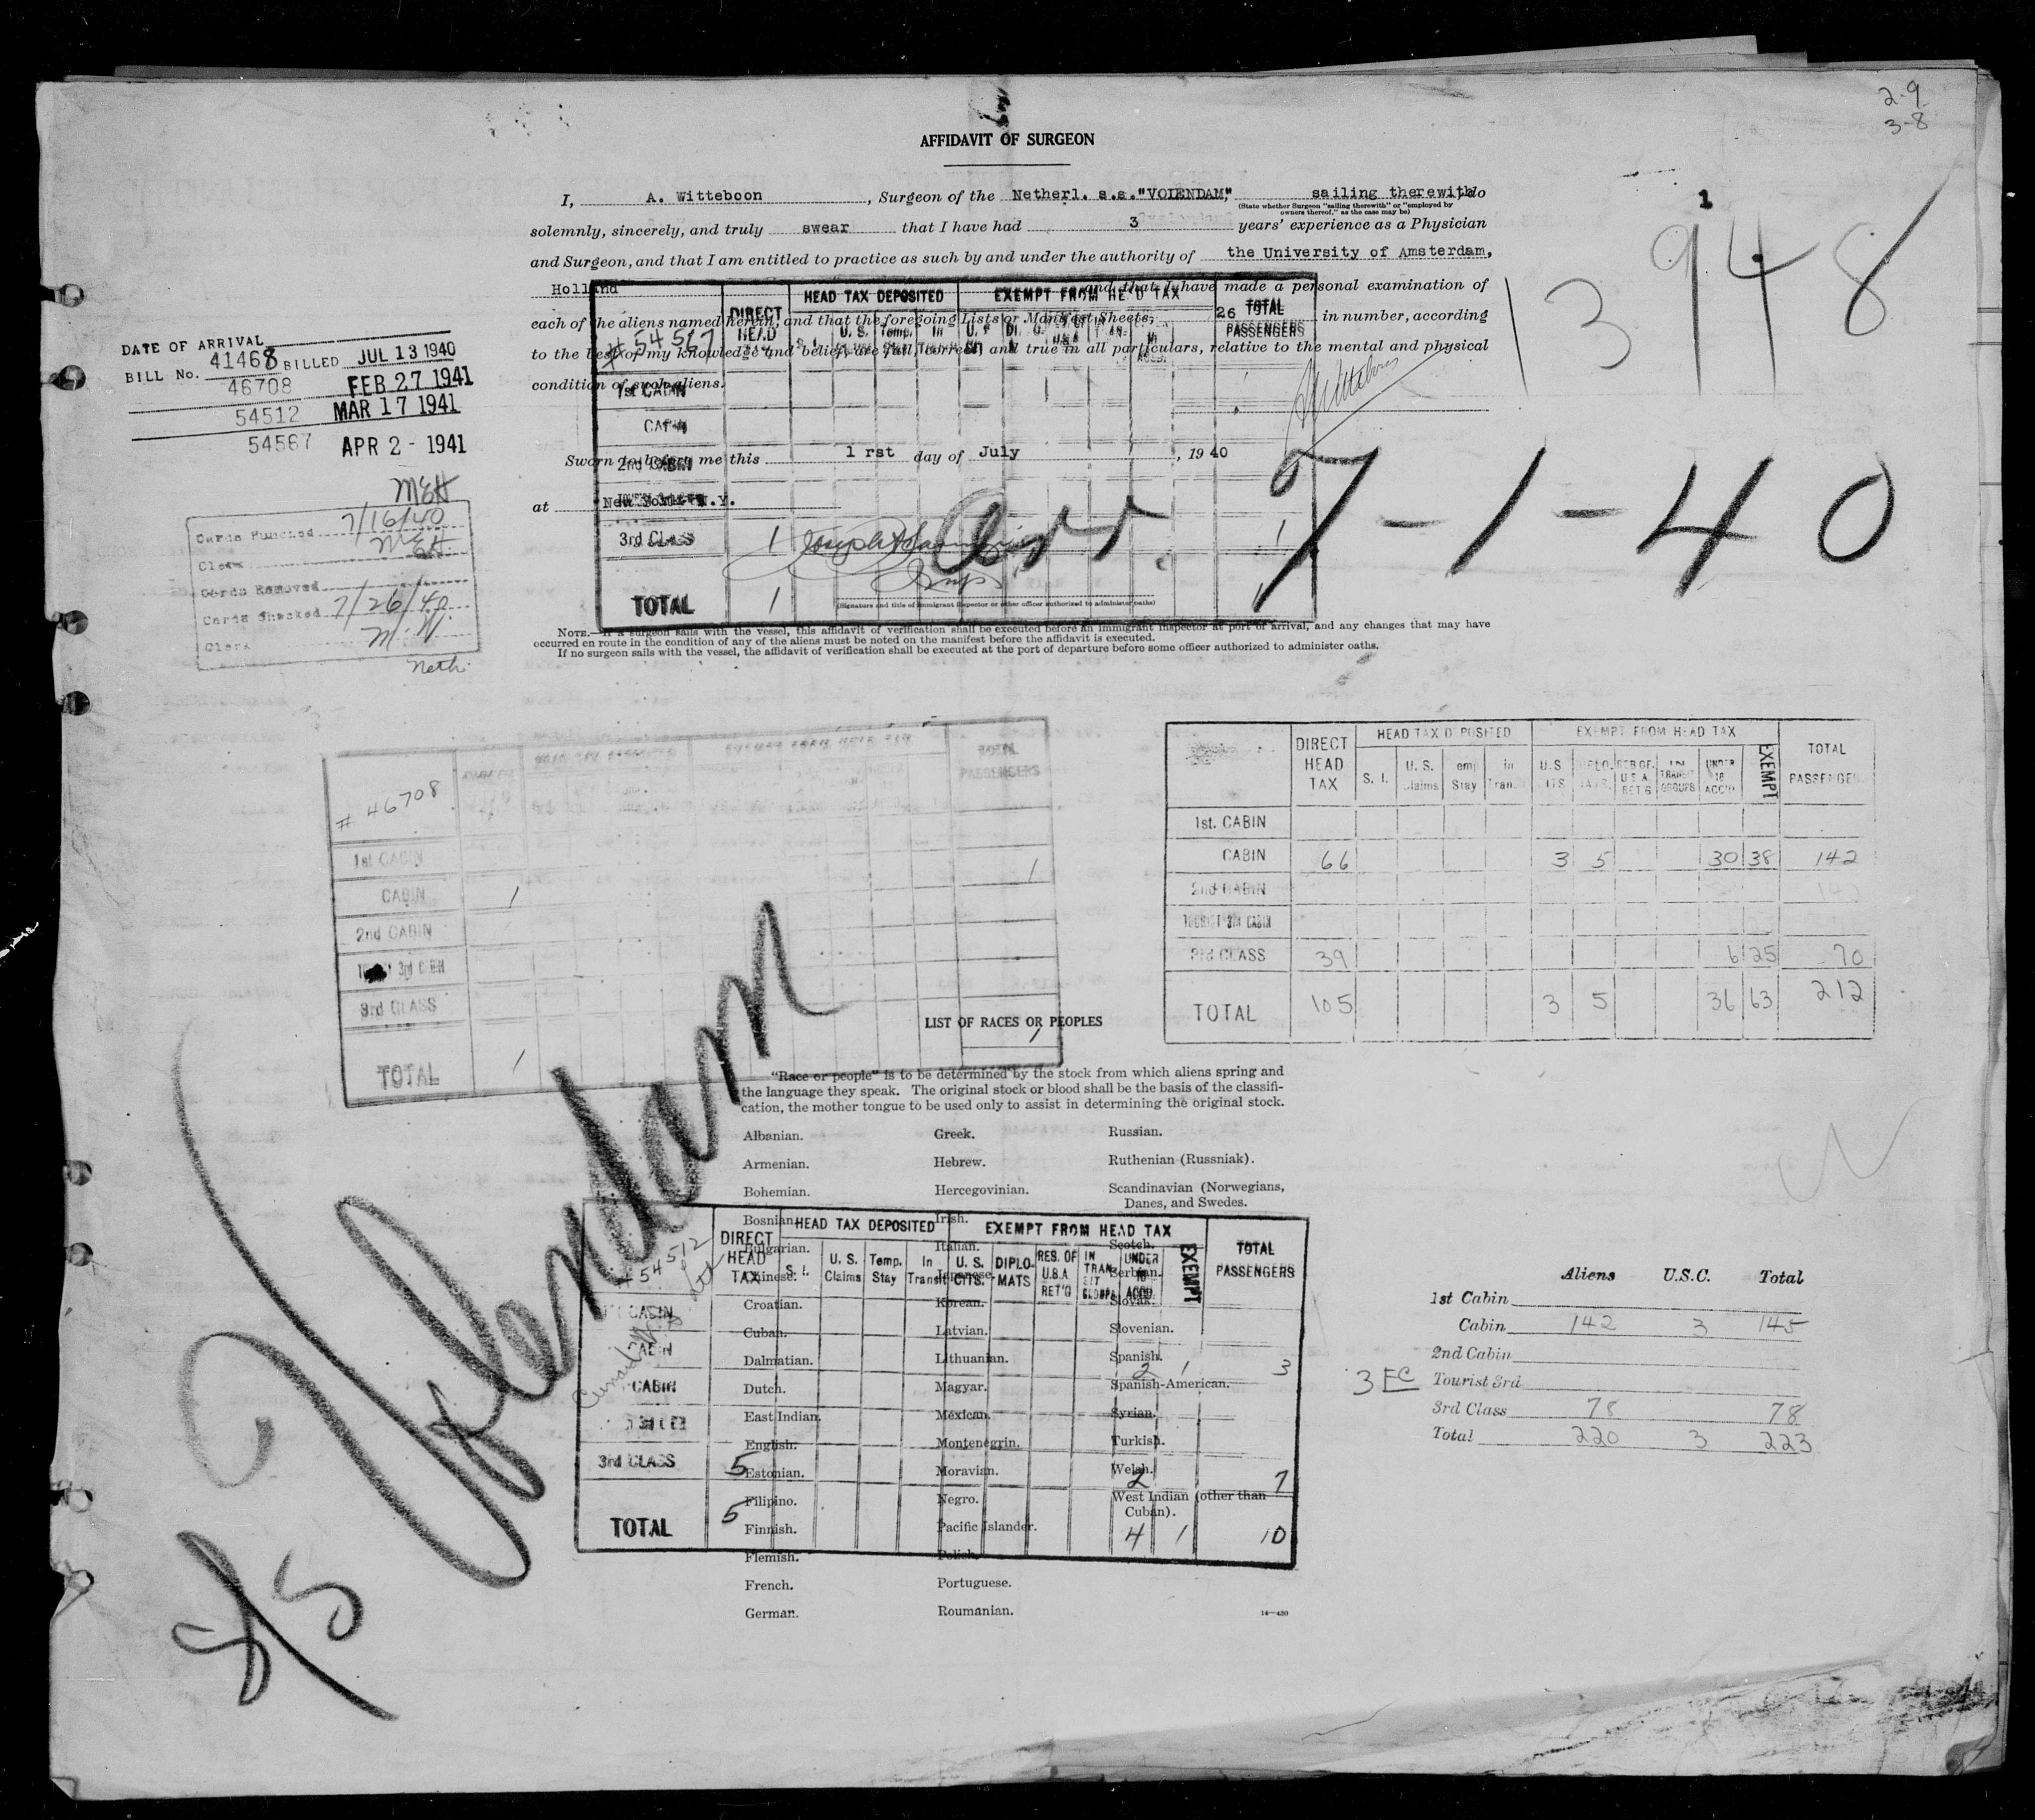 2-9
3-8
AFFIDAVIT OF SURGEON
1
13948
I, A. Witteboon, Surgeon of the Netherl. s.s."VOLENDAM", sailing therewith, do
(State whether Surgeon "sailing therewith" or "employed by
owners thereof," as the case may be)
solemnly, sincerely, and truly swear that I have had 3 years' experience as a Physician
and Surgeon, and that I am entitled to practice as such by and under the authority of the University of Amsterdam,
Holland and that I have made a personal examination of
each of the aliens named herein, and that the foregoing Lists or Manifest Sheets, 26 in number, according
to the best of my knowledge and belief, are full, correct, and true in all particulars, relative to the mental and physical
condition of such aliens.
Sworn to before me this 1 rst day of July, 1940
at New York N.Y.
Arr. 7-1-40
(Signature and title of immigrant inspector or other officer authorized to administer oaths)
NOTE.—If a surgeon sails with the vessel, this affidavit of verification shall be executed before an immigrant inspector at port of arrival, and any changes that may have
occurred en route in the condition of any of the aliens must be noted on the manifest before the affidavit is executed.
If no surgeon sails with the vessel, the affidavit of verification shall be executed at the port of departure before some officer authorized to administer oaths.
DATE OF ARRIVAL
BILL No. 41468 BILLED JUL 13 1940
46708 FEB 27 1941
54512 MAR 17 1941
54567 APR 2 - 1941
MEH
Cards Punched 7/16/40
Clerk MEH
Cards Removed
Cards Checked 7/26/40
Clerk M.W.
Neth.
# 54567
DIRECT HEAD
HEAD TAX DEPOSITED
EXEMPT FROM HEAD TAX
TOTAL PASSENGERS
1st CABIN
CABIN
2nd CABIN
3rd CLASS 1 1
TOTAL 1 1
# 46708
TOTAL PASSENGERS
1st CABIN
CABIN 1 1
2nd CABIN
3rd CLASS
TOTAL 1 1
DIRECT HEAD TAX
HEAD TAX DEPOSITED
EXEMPT FROM HEAD TAX
TOTAL PASSENGERS
S. I. U. S. Claims Temp Stay in Tran U.S. CITS. DIPLO. MATS. RES OF. U S A RET'G IN TRANSIT GROUPS UNDER 16 ACC'D EXEMPT
1st. CABIN
CABIN 66 3 5 30 38 142
2nd CABIN
TOURIST 3rd CABIN
3rd CLASS 39 6 25 70
TOTAL 105 3 5 36 63 212
S/S Volendam
LIST OF RACES OR PEOPLES
"Race or people" is to be determined by the stock from which aliens spring and
the language they speak. The original stock or blood shall be the basis of the classifi-
cation, the mother tongue to be used only to assist in determining the original stock.
Albanian.
Armenian.
Bohemian.
Bosnian.
Bulgarian.
Chinese.
Croatian.
Cuban.
Dalmatian.
Dutch.
East Indian.
English.
Estonian.
Filipino.
Finnish.
Flemish.
French.
German.
Greek.
Hebrew.
Hercegovinian.
Irish.
Italian.
Japanese.
Korean.
Latvian.
Lithuanian.
Magyar.
Mexican.
Montenegrin.
Moravian.
Negro.
Pacific Islander.
Polish.
Portuguese.
Roumanian.
Russian.
Ruthenian (Russniak).
Scandinavian (Norwegians,
Danes, and Swedes.
Scotch.
Serbian.
Slovak.
Slovenian.
Spanish.
Spanish-American.
Syrian.
Turkish.
Welsh.
West Indian (other than
Cuban).
14—430
# 54512
DIRECT HEAD TAX
HEAD TAX DEPOSITED
EXEMPT FROM HEAD TAX
TOTAL PASSENGERS
S. I. U. S. Claims Temp. Stay In Transit U. S. CITS. DIPLO-MATS RES. OF U.S.A RET'G IN TRANSIT GROUPS UNDER 16 ACCD. EXEMPT
CABIN
CABIN 2 1 3
CABIN
3rd CLASS 5 2 7
TOTAL 5 4 1 10
Aliens U.S.C. Total
1st Cabin
Cabin 142 3 145
2nd Cabin
3 FC Tourist 3rd
3rd Class 78 78
Total 220 3 223